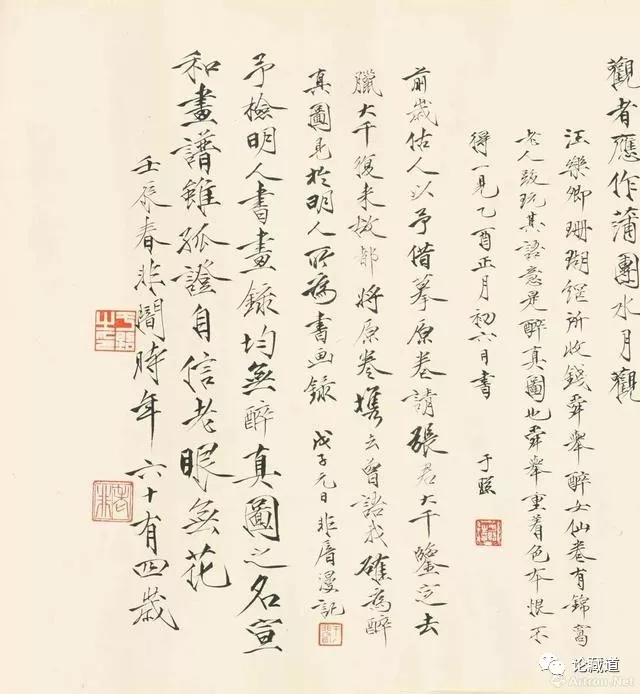 觀者應作蒲團水月觀
汪樂卿珊瑚網所收錢舜舉醉女仙卷有錦窩
老人跋玩其語意是醉真圖也舜舉重着色本恨不
得一見乙酉正月初六日書 于照
前歲估人以予借摹原卷請張君大千鑒定去
臘大千復來故都將原卷攜去曾語我確為醉
真圖見於明人所為書画錄 戊子元日非厂漫記
予檢明人書畫錄均無醉真圖之名宣
和畫譜雖孤證自信老眼無花
壬辰春非闇時年六十有四歲
论藏道
Artron.Net